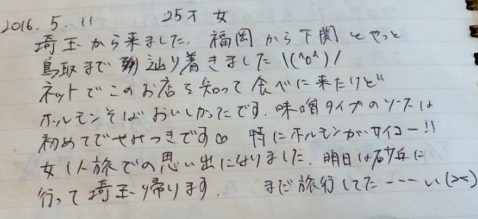 2016.5.11 25才 女
埼玉から来ました。福岡から下関とやっと
鳥取まで辿り着きました\(^o^)/
ネットでこのお店を知って食べに来たけど
ホルモンそばおいしかったです。味噌タイプのソースは
初めてでやみつきです∞ 特にホルモンがサイコー!!
女1人旅での思い出になりました。明日は砂丘に
行って埼玉帰ります。 まだ旅行してたーーーい(><)